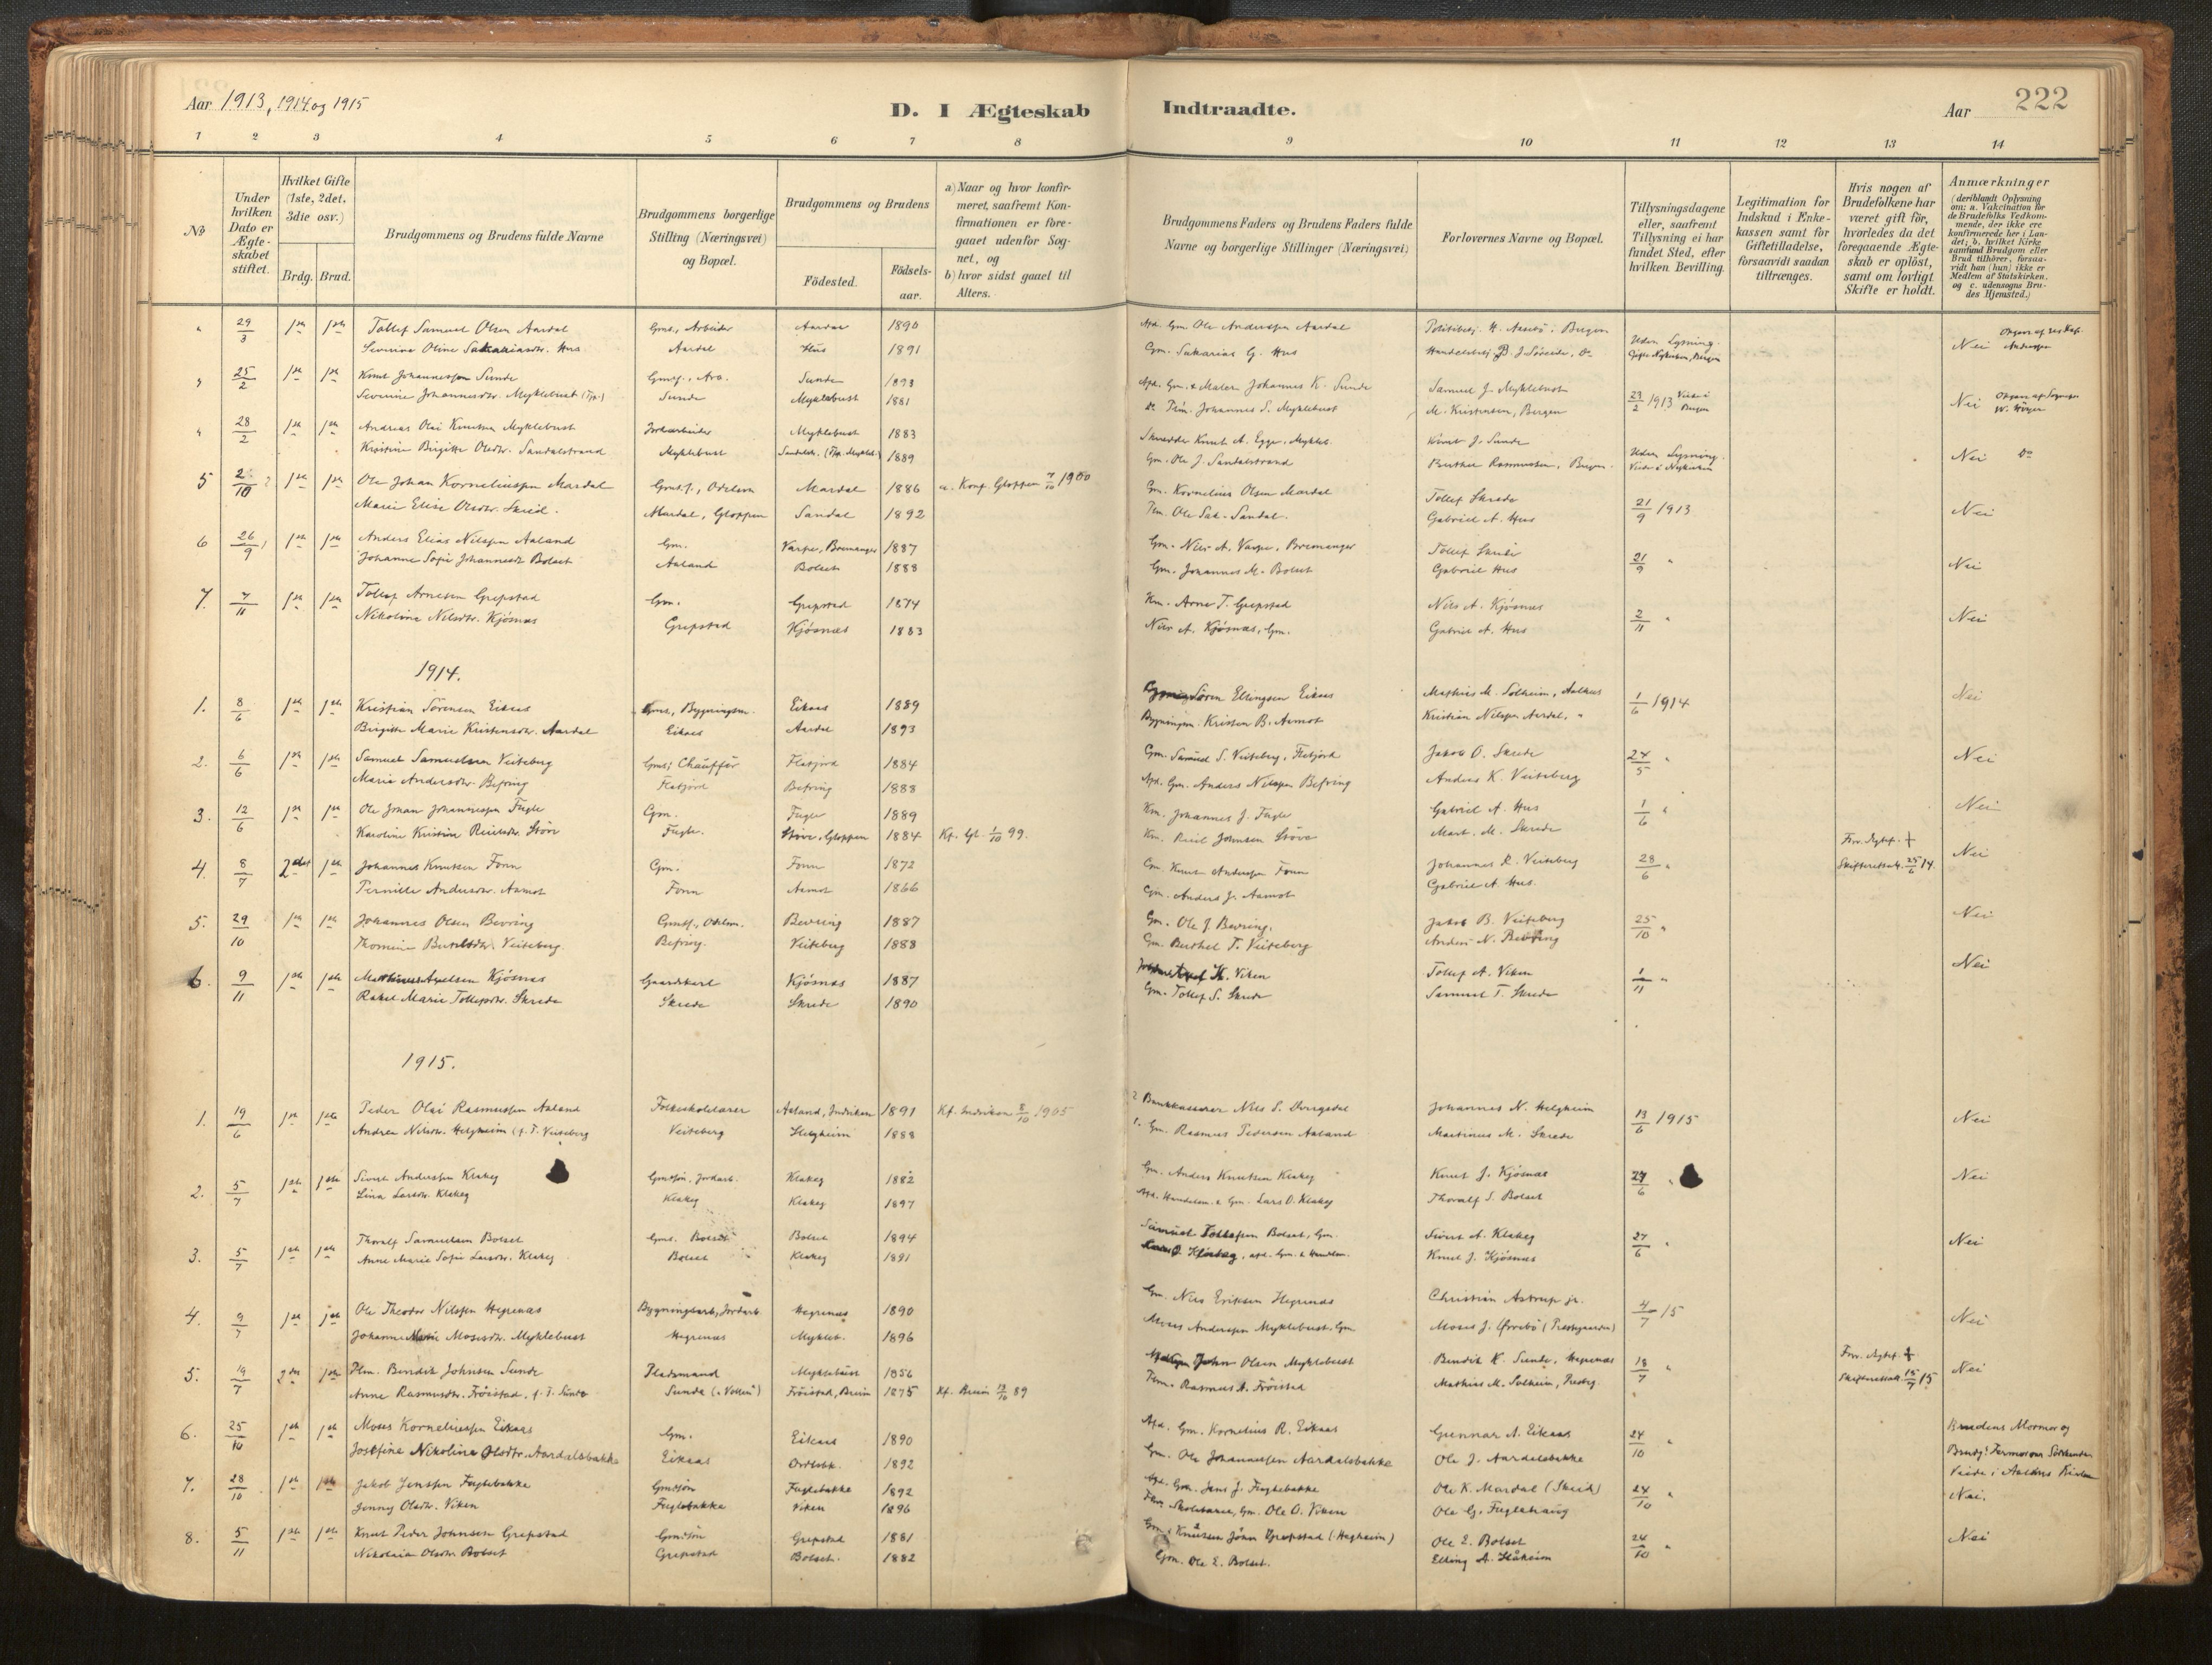 Aar 1913, 1914 og 1915
D. I Ægteskab Indtraadte.
Aar
222
1 2 3 4 5 6 7 8 9 10 11 12 13 14
No
Under hvilken Dato er Ægte-skabet stiftet.
Hvilket Gifte (1ste, 2det, 3die osv.)
Brdg. Brud.
Brudgommens og Brudens fulde Navne
Brudgommens borgerlige Stilling (Næringsvei) og Bopæl.
Brudgommens og Brudens
Födested.
Födsels-aar.
a) Naar og hvor konfir-meret, saafremt Kon-firmationen er fore-gaaet udenfor Sog-net, og
b) hvor sidst gaaet til Alters.
Brudgommens Faders og Brudens Faders fulde Navne og borgerlige Stillinger (Næringsvei)
Forlovernes Navne og Bopæl.
Tillysningsdagene eller, saafremt Tillysning ei har fundet Sted, efter hvilken Bevilling.
Legitimation for Indskud i Enke-kassen samt for Giftetilladelse, forsaavidt saadan tiltrænges.
Hvis nogen af Brudefolkene har været gift för, hvorledes da det foregaaende Ægte-skab er oplöst, samt om lovligt Skifte er holdt.
Anmærkninger (deriblandt Oplysning om: a. Vakcination for de Brudefolks Vedkom-mende, der ikke ere konfirmerede her i Lan-det; b. hvilket Kirke samfund Brudgom eller Brud tilhörer, forsaa-vidt han (hun) ikke er Medlem af Statskirken. og c. udensogns Bru-des Hjemsted.)
" 29/3 1ste 1ste Tollef Samuel Olsen Aardal Gmd., Arbeider Aardal 1890 Afd. Gm. Ole Andersen Aardal Uden Lysning.
Severine Oline Sakariasdtr. Hus Aardal Hus 1891 Gm. Sakarias G. Hus Nei
" 25/2 1ste 1ste Knut Johannessen Sunde Sunde 1893 Afd. Gm. & Maler Johannes K. Sunde Samuel J. Myklebust 23/2 1913
Severine Johannesdtr. Myklebust Sunde Myklebust 1881 Johannes S. Myklebust M. Kristensen, Bergen Nei
" 28/2 1ste 1ste Andreas Olai Knutsen Myklebust Jordarbeider Myklebust 1883 Knut A. Egge, Mykleb. Knut J. Sunde Uden Lysning.
Kristine Birgitte Olesdtr. Sandalstrand Myklebust 1889 Gm. Ole J. Sandalstrand Berthel Rasmussen, Bergen Nei Do
5 2/10 1ste 1ste Ole Johan Korneliussen Mardal Mardal 1886 a. Konf. Gloppen 7/10 1900 Gm. Kornelius Olsen Mardal Tollef Skrede 21/9 1913 Nei
Marie Elise Olsdtr. Skreid. Mardal, Gloppen Sandal 1892 Gabriel A. Hus
6 26/9 1ste 1ste Anders Elias Nilssen Aaland Gm. Varpe, Bremanger 1887 Gm. Nils A. Varpe, Bremanger Tollef Skrede 21/9 " Nei
Johanne Sofie Johannesdtr. Bolset Aaland Bolset 1888 Gm. Johannes M. Bolset Gabriel Hus
7. 7/11 1ste 1ste Tollef Arnesen Grepstad Gm. Grepstad 1874 Km. Arne T. Grepstad Nils A. Kjösnæs 2/11 " Nei
Nikoline Nilsdtr. Kjösnæs Grepstad Kjösnæs 1883 Nils A. Kjösnæs, Gm. Gabriel A. Hus
1914.
1. 8/6 1ste 1ste Kristian Sörensen Eikaas Gmd., Bygningsm. Eikaas 1889 Sören Ellingsen Eikaas Mathias M. Solheim, Aalhus 1/6 1914 Nei
Birgitte Marie Kristensdtr. Aardal Eikaas Aardal 1893 Bygningsm. Kristen B. Aamot Kristian Nilssen Aardal, "
2. 6/6 1ste 1ste Samuel Samuelsen Veiteberg Gmds., Chauffør Flatjord 1884 Gm. Samuel S. Veiteberg, Flatjord Jakob O. Skrede 24/5 " Nei
Marie Andersdtr. Befring Flatjord Befring 1888 Afd. Gm. Anders Nilssen Befring Anders K. Veiteberg
3. 12/6 1ste 1ste Ole Johan Johannessen Fugle Gm. Fugle 1889 Km. Johannes J. Fugle Gabriel A. Hus 1/6 " Nei
Karoline Kristine Störe Fugle. Störe, Gloppen 1884 Kf. Gl. 1/10 99. Km. Johnsen Störe Mart. M. Skrede
4. 8/7 2det 1ste Johannes Knutsen Fonn Gm. Fonn 1872 Gm. Knut Andersen Fonn Johannes R. Veiteberg 28/6 " Forr. Ægtef. † Nei
Pernille Andersdtr. Aamot Fonn Aamot 1866 Gm. Anders J. Aamot Gabriel A. Hus. Skifterettsatt. 25/6 14.
5. 29/10 1ste 1ste Johannes Olsen Bevring Bevring 1887 Gm. Ole J. Bevring. Jakob B. Veiteberg 25/10 " Nei
Thomine Berthelsdtr. Veiteberg. Befring. Veiteberg 1888 Gm. Berthel T. Veiteberg Anders N. Bevring
6. 9/11 1ste 1ste Axelsen Kjösnæs Gaardskarl Kjösnæs 1887 K. Viken Tollef A. Viken 1/11 " Nei
Rakel Marie Tollefsdtr. Skrede Skrede Skrede 1890 Gm. Tollef S. Skrede Samuel T. Skrede
1915.
1. 19/6 1ste 1ste Peder Olai Rasmussen Aaland Folkeskolelærer Aaland, Indviken 1891 Kf. Indviken 8/10 1905 2 Bankkasserer Nils S. Johannes N. Helgheim 13/6 1915 Nei
Andrea Nilsdtr. Helgheim (f. T. Veiteberg Veiteberg Helgheim 1888 1. Gm. Rasmus Pedersen Aaland Martinus M. Skrede
2. 5/7 1ste 1ste Sivert Andersen Klakeg Gmdsøn, Jordarb. Klakeg 1882 Gm. Anders Knutsen Klakeg Knut J. Kjösnæs 27/6 " Nei
Lina Larsdtr. Klakeg Klakeg Klakeg 1897 Afd. Handelsm. & Gm. Lars O. Klakeg Thoralf S. Bolset
3. 5/7 1ste 1ste Thoralf Samuelsen Bolset Gmds. Bolset Bolset 1894 Samuel Tollefsen Bolset, Gm. Sivert A. Klakeg 27/6 " Nei
Anne Marie Sofie Larsdtr. Klakeg Bolset Klakeg 1891 Lars O. Klakeg, afd. Gm. & Handlm. Knut J. Kjösnæs
4. 9/7 1ste 1ste Ole Theodor Nilssen Hegrenæs Bygningsarb., Jordarb. Hegrenæs 1890 Gm. Nils Eriksen Hegrenæs Christian Astrup jr. 4/7 15 Nei
Johanne Marie Mosesdtr. Myklebust Hegrenæs Mykleb. 1896 Moses Andersen Myklebust, Gm. Moses J. Örrebö (Prestegaarden)
5. 19/7 2den 1ste Plm. Bendik Johnsen Sunde Pladsmand Myklebust 1856 John Olsen Myklebust Bendik K. Sunde, Hegrenæs 18/7 " Forr. Ægtef. † Nei
Anne Rasmusdtr. Fröistad, f. T. Sunde Sunde ("Vollen") Fröistad, Breim 1875 Kf. Breim 89 Plm. Rasmus A. Fröistad Mathias M. Solheim, Skifterettsatt. 15/7 15
6. 25/10 1ste 1ste Moses Korneliussen Eikaas Gm. Eikaas 1890 Afd. Gm. Kornelius R. Eikaas Gunnar A. Eikaas 24/10 " Brudens Mormor og
Josefine Nikoline Olsdtr. Aardalsbakke Eikaas 1892 Gm. Ole Johannessen Aardalsbakke Ole J. Aardalsbakke Brudg. Farmor
7. 28/10 1ste 1ste Jakob Jenssen Fuglebakke Gmdsøn Fuglebakke 1892 Afd. Gm. Jens J. Fuglebakke Ole K. Mardal (Skreid) 24/10 " Nei.
Jenny Olsdtr. Viken Fuglebakke Viken 1896 Skolelærer, Gm. Ole O. Viken Ole G. Fuglehaug
8. 5/11 1ste 1ste Knut Peder Johnsen Grepstad Gmdsøn Grepstad 1881 Gm. Knutsen John Grepstad (Hegheim) Ole E. Bolset 24/10 " Nei
Nikolaia Olsdtr. Bolset Grepstad Bolset. 1882 Gm. Ole E. Bolset. Elling A. Håheim